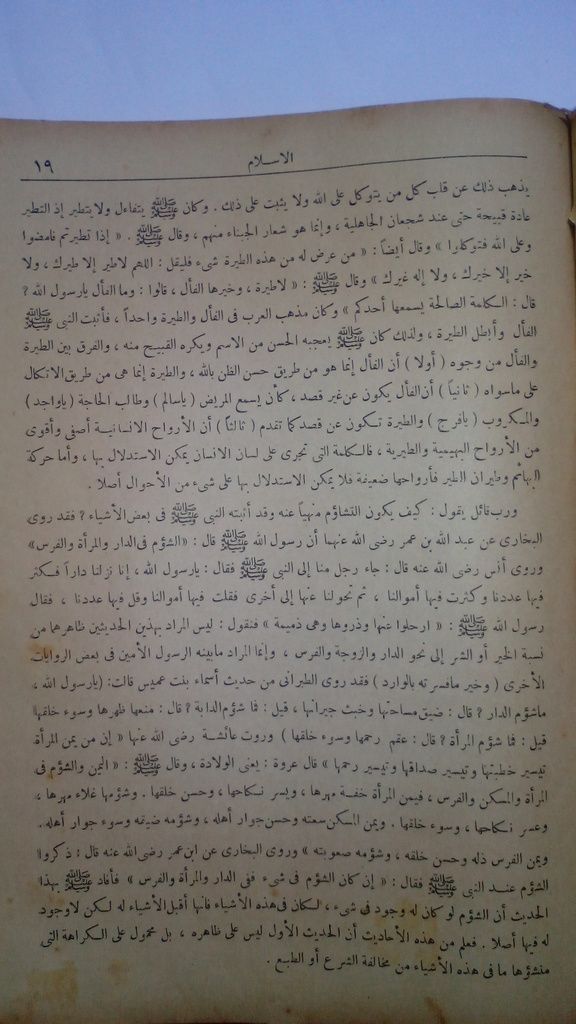 ١٩
الاسلام
يذهب ذلك عن قاب كل من يتوكل على الله ولا يثبت على ذلك . وكان ﷺ يتفاءل ولا يتطير إذ التطير
عادة قبيحة حتى عند شجعان الجاهلية ، وإنما هو شعار الجبناء منهم ، وقال ﷺ . « إذا تطيرتم فامضوا
وعلى الله فتوكلوا » وقال أيضاً : « من عرض له من هذه الطيرة شىء فليقل : اللهم لاطير إلا طيرك ، ولا
خير إلا خيرك ، ولا إله غيرك » وقال ﷺ : « لاطيرة ، وخيرها الفأل ، قالوا : وما الفأل يارسول الله ؟
قال : الكلمة الصالحة يسمعها أحدكم » وكان مذهب العرب فى الفأل والطيرة واحداً ، فأثبت النبى ﷺ
الفأل وأبطل الطيرة ، ولذلك كان ﷺ يعجبه الحسن من الاسم ويكره القبيح منه ، والفرق بين الطيرة
والفأل من وجوه ( أولا ) أن الفأل إنما هو من طريق حسن الظن بالله ، والطيرة إنما هى من طريق الاتكال
على ماسواه ( ثانياً ) أن الفأل يكون عن غير قصد ، كأن يسمع المريض ( ياسالم ) وطالب الحاجة ( ياواجد )
والمكروب ( يافرج ) والطيرة تكون عن قصد كما تقدم ( ثالثاً ) أن الأرواح الانسانية أصفى وأقوى
من الأرواح البهيمية والطيرية ، فالكلمة التى تجرى على لسان الانسان يمكن الاستدلال بها ، وأما حركة
البهائم وطيران الطير فأرواحها ضعيفة فلا يمكن الاستدلال بها على شىء من الأحوال أصلا .
ورب قائل يقول : كيف يكون التشاؤم منهياً عنه وقد أثبته النبى ﷺ فى بعض الأشياء ؟ فقد روى
البخارى عن عبد الله بن عمر رضى الله عنهما أن رسول الله ﷺ قال : « الشؤم فى الدار والمرأة والفرس »
وروى أنس رضى الله عنه قال : جاء رجل منا إلى النبى ﷺ فقال : يارسول الله ، إنا نزلنا داراً فكثر
فيها عددنا وكثرت فيها أموالنا ، ثم تحولنا عنها إلى أخرى فقلت فيها أموالنا وقل فيها عددنا ، فقال
رسول الله ﷺ : « ارحلوا عنها وذروها وهى ذميمة » فنقول : ليس المراد بهذين الحديثين ظاهرهما من
نسبة الخير أو الشر إلى نحو الدار والزوجة والفرس ، وإنما المراد مابينه الرسول الأمين فى بعض الروايات
الأخرى ( وخير مافسرته بالوارد ) فقد روى الطبرانى من حديث أسماء بنت عميس قالت: ( يارسول الله ،
ماشؤم الدار ؟ قال : ضيق مساحتها وخبث جيرانها ، قيل : فما شؤم الدابة ؟ قال : منعها ظهرها وسوء خلقها
قيل : فما شؤم المرأة ؟ قال : عقم رحمها وسوء خلقها ) وروت عائشة رضى الله عنها « إن من يمن المرأة
تيسير خطبتها وتيسير صداقها وتيسير رحمها » قال عروة : يعنى الولادة ، وقال ﷺ : « اليمن والشؤم فى
المرأة والمسكن والفرس ، فيمن المرأة خفة مهرها ، ويسر نكاحها ، وحسن خلقها . وشؤمها غلاء مهرها ،
وعسر نكاحها ، وسوء خلقها . ويمن المسكن سعته وحسن جوار أهله ، وشؤمه ضيقه وسوء جوار أهله .
ويمن الفرس ذله وحسن خلقه ، وشؤمه صعوبته » وروى البخارى عن ابن عمر رضى الله عنه قال : ذكروا
الشؤم عند النبى ﷺ فقال : « إن كان الشؤم فى شىء ففى الدار والمرأة والفرس » فأفاد ﷺ بهذا
الحديث أن الشؤم لو كان له وجود فى شىء ، لكان فى هذه الأشياء فانها أقبل الأشياء له لكن لاوجود
له فيها أصلا . فعلم من هذه الأحاديث أن الحديث الأول ليس على ظاهره ، بل محمول على الكراهة التى
منشؤها ما فى هذه الأشياء من مخالفة الشرع أو الطبع .